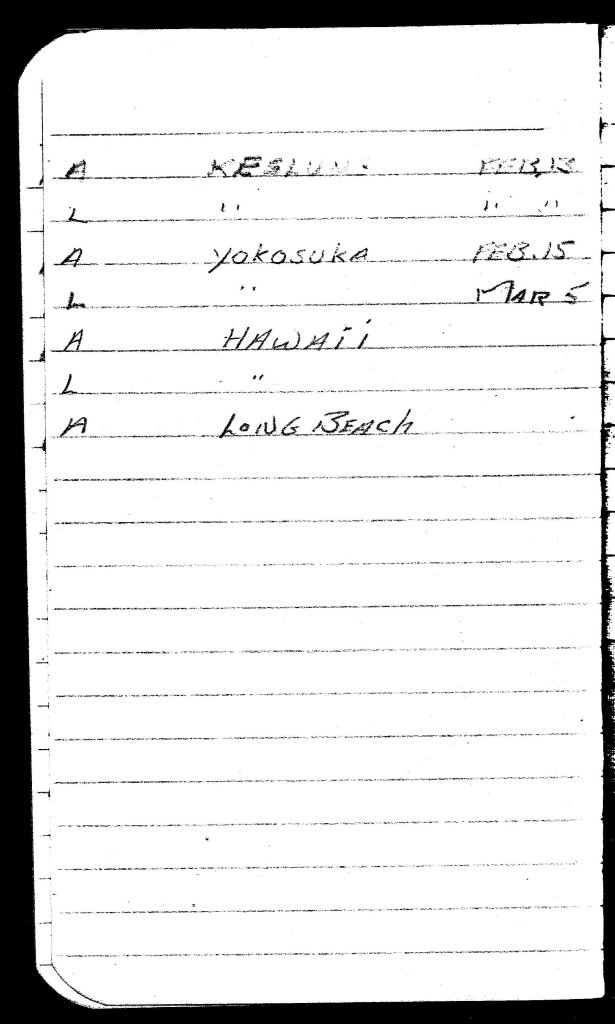 A KEELUNG FEB. 13
L " " "
A YOKOSUKA FEB. 15
L " MAR 5
A HAWAII
L "
A LONG BEACH